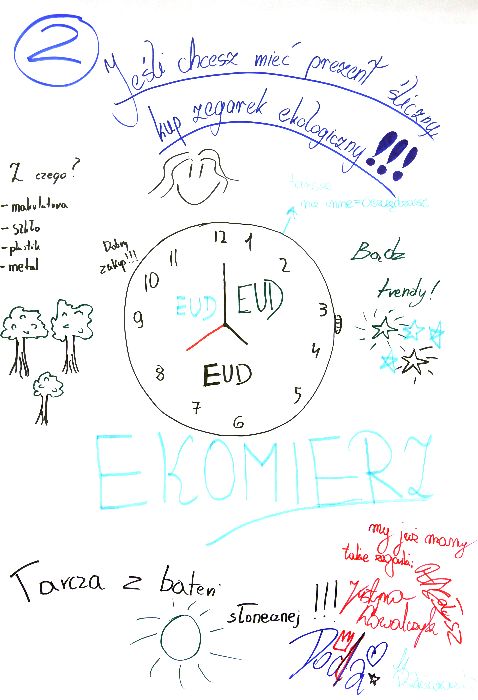 2
Jeśli chcesz mieć prezent śliczny
kup zegarek ekologiczny!!!
Z czego?
- makulatura
- szkło
- plastik
- metal
Dobry
zakup!!!
12
1
2
3
4
5
6
7
8
9
10
11
EUD
EUD
EUD
Bądź
trendy!
EKOMIERZ
Tarcza z bateri
słonecznej !!!
my już mamy
takie zegarki:
Justyna
Kowalczyk
Doda